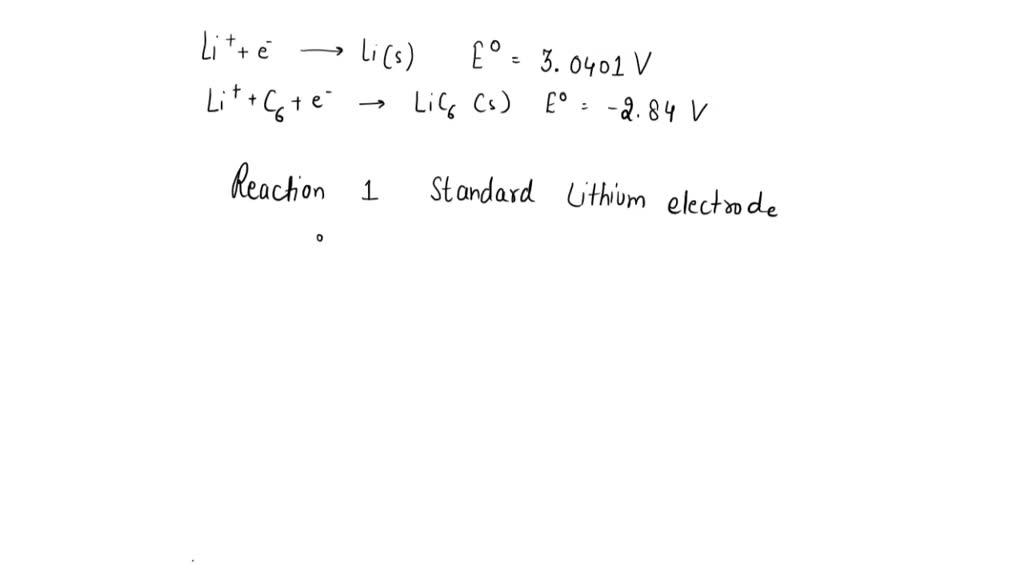 Li⁺ + e⁻ → Li(s) E⁰ = 3.0401 V
Li⁺ + C₆ + e⁻ → LiC₆ (s) E⁰ = -2.84 V
Reaction 1 Standard Lithium electrode